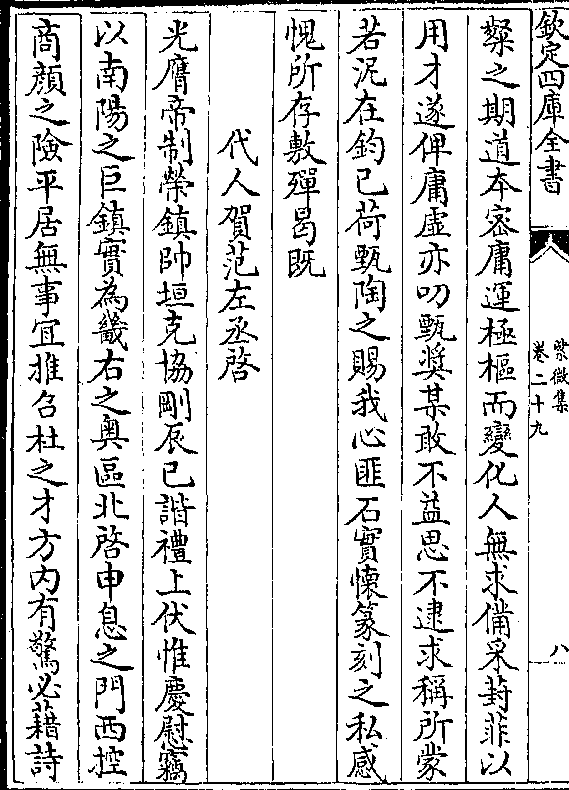 欽定四庫全書
紫微集
卷二十九
八
粲之期道本密庸運極樞而變化人無求備采葑菲以
用才遂俾庸虛亦叨甄奨某敢不益思不逮求稱所蒙
若泥在鈞已荷甄陶之賜我心匪石實懐篆刻之私感
愧所存敷殫曷既
代人賀范左丞啓
光膺帝制榮鎮帥垣克協剛辰已諧禮上伏惟慶慰竊
以南陽之巨鎮實為畿右之奥區北啓申息之門西控
商顔之險平居無事宜推召杜之才方内有驚必藉詩